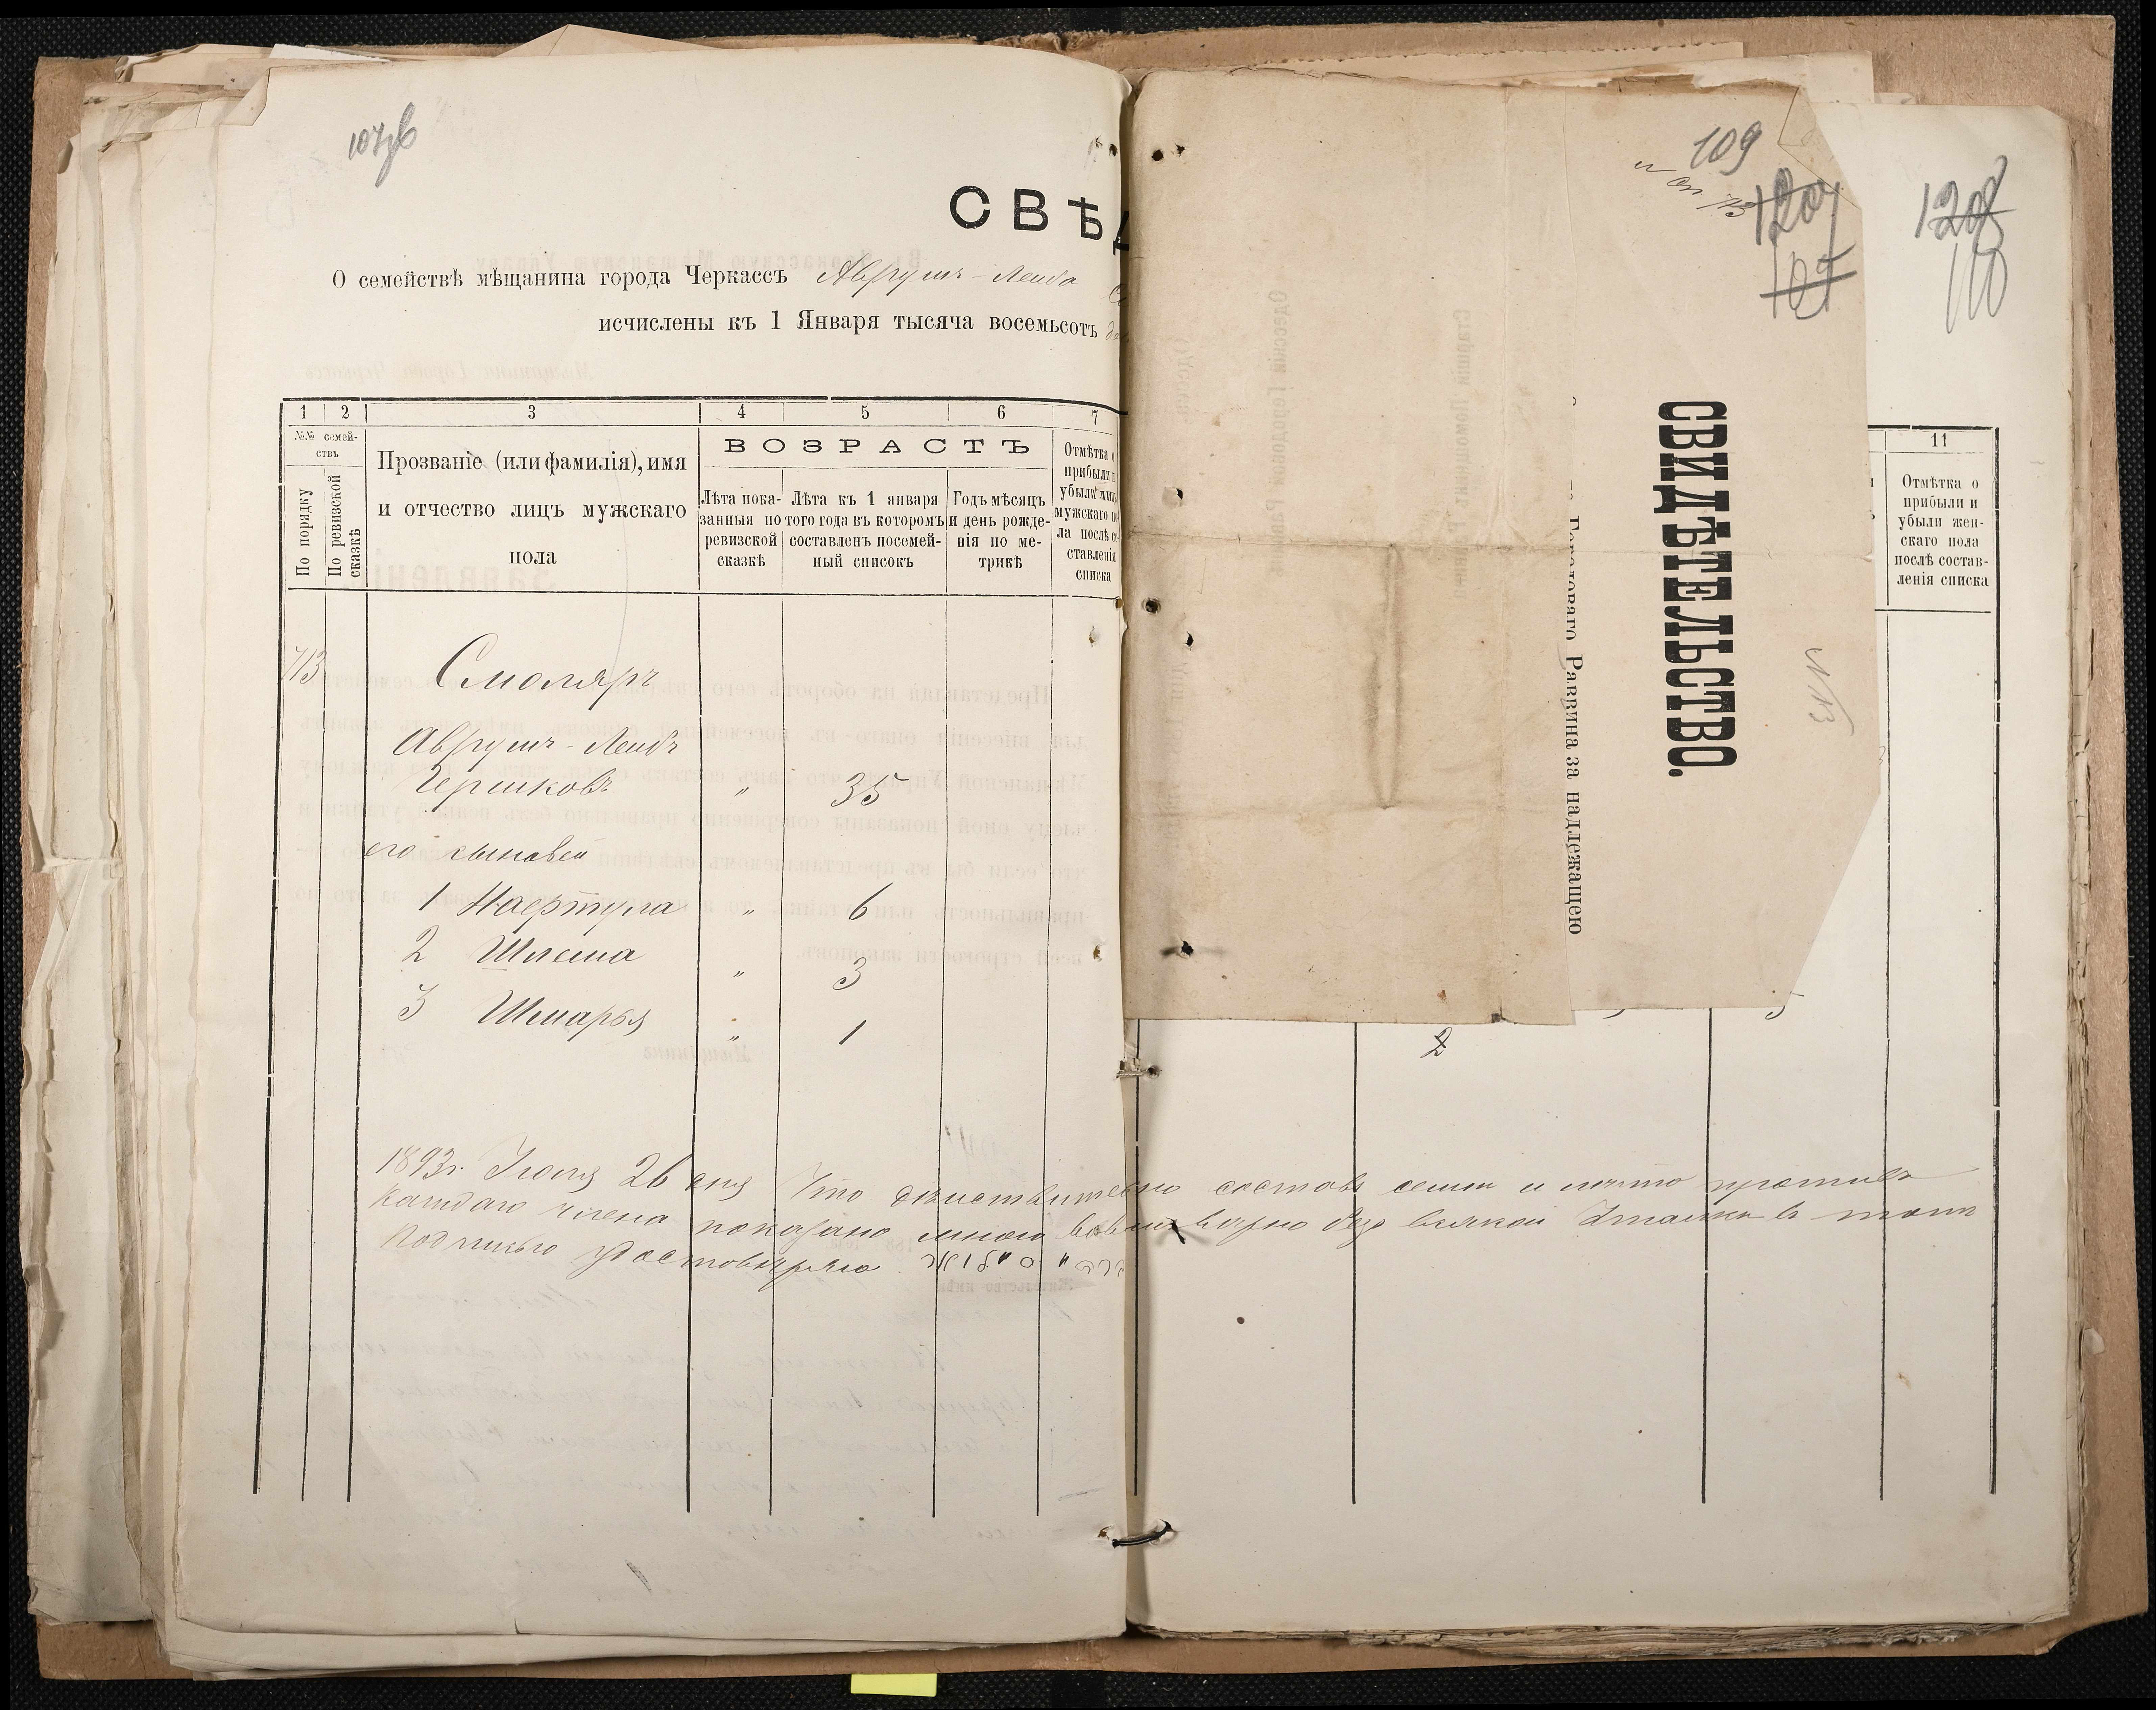 107об
СВѢД
О семействѣ мѣщанина города Черкассъ Аврумъ-Лейба
исчислены къ 1 Января тысяча восемьсотъ
1 2 3 4 5 6 7
№№ семей-
ствъ
По порядку
По ревизской
сказкѣ
Прозваніе (или фамилія), имя
и отчество лицъ мужскаго
пола
ВОЗРАСТЪ
Лѣта пока-
занныя по
ревизской
сказкѣ
Лѣта къ 1 января
того года въ которомъ
составленъ посемей-
ный списокъ
Годъ мѣсяцъ
и день рожде-
нія по ме-
трикѣ
Отмѣтка о
прибыли и
убыли лицъ
мужскаго по-
ла послѣ со-
ставленія
списка
713 Смоляръ
Аврумъ-Лейбъ
Гершковъ " 35
его сыновей
1 " 6
2 Шлема " 3
3 Шмарья " 1
1893 г. Іюля 26 дня Что дѣйствительно составъ семьи и лѣта противъ
каждаго члена показано мною вѣрно безъ всякой утайки въ томъ
подписью удостовѣряю
109
120
109
СВИДѢТЕЛЬСТВО.
Городоваго Раввина за надлежащею
713
120
110
11
Отмѣтка о
прибыли и
убыли жен-
скаго пола
послѣ состав-
ленія списка
2